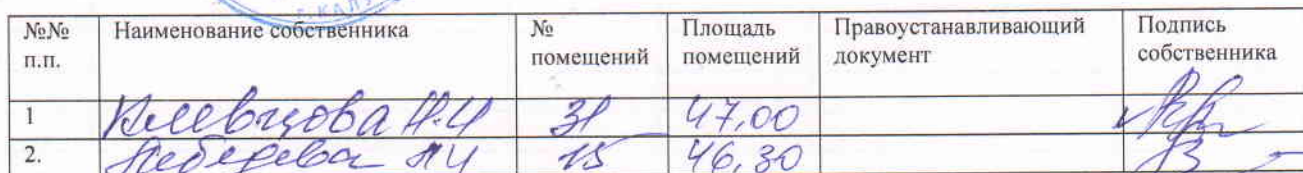 Г. КАЛУ
№№ п.п. Наименование собственника № помещений Площадь помещений Правоустанавливающий документ Подпись собственника
1 Клевцова Н.И 31 47,00
2. Лебедева 15 46,30